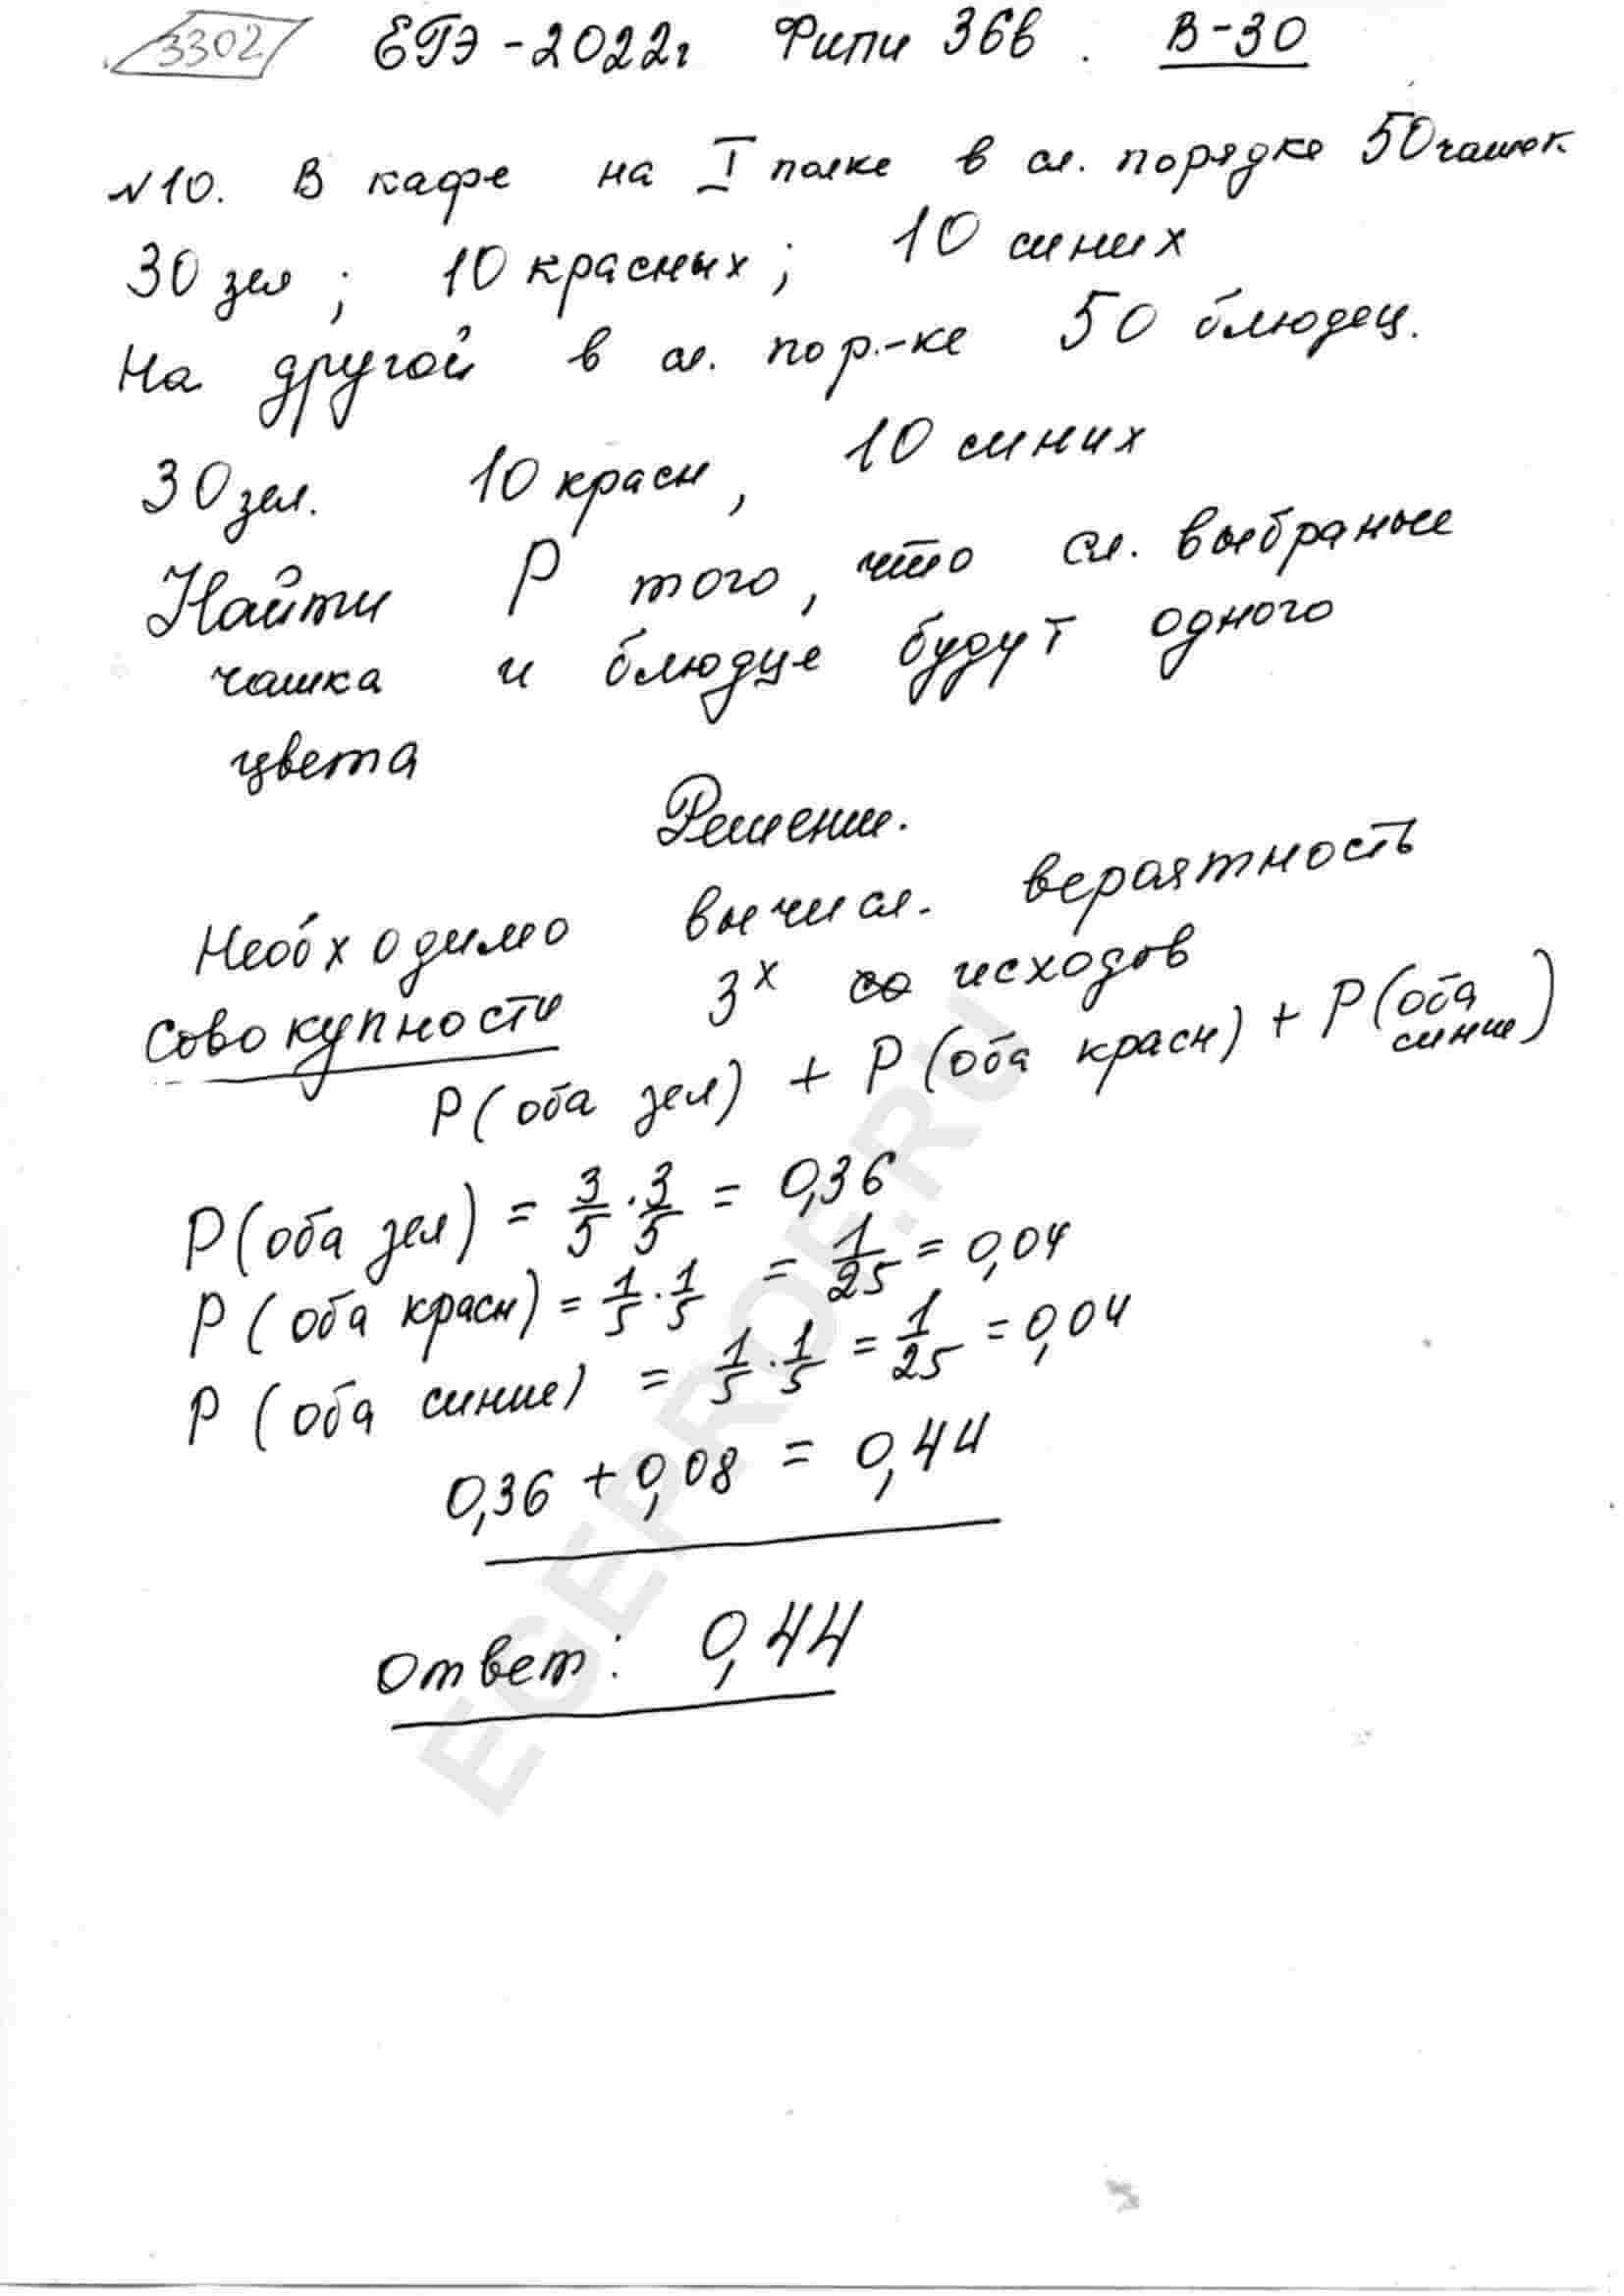 3302 ЕГЭ-2022г Фипи 36в. В-30
№10. В кафе на I полке в сл. порядке 50 чашек
30 зел; 10 красных; 10 синих
На другой в сл. пор.-ке 50 блюдец.
30 зел. 10 красн, 10 синих
Найти P того, что сл. выбраные
чашка и блюдце будут одного
цвета
Решение.
Необходимо вычисл. вероятность
совокупности 3х исходов
P(оба зел) + P(оба красн) + P(оба синие)
P(оба зел) = 3/5 · 3/5 = 0,36
P(оба красн) = 1/5 · 1/5 = 1/25 = 0,04
P(оба синие) = 1/5 · 1/5 = 1/25 = 0,04
0,36 + 0,08 = 0,44
Ответ: 0,44
EGEPROF.RU